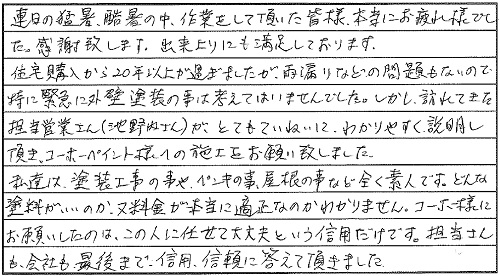 連日の猛暑、酷暑の中、作業をして頂いた皆様、本当にお疲れ様でし
た。感謝致します。出来上りにも満足しております。
住宅購入から20年以上が過ぎましたが、雨漏りなどの問題もないので
特に緊急に外壁塗装の事は考えてはいませんでした。しかし、訪れてきた
担当営業さん(池野内さん)が、とてもていねいに、わかりやすく、説明し
頂き、コーホーペイント様への施工をお願い致しました。
私達は、塗装工事の事や、ペンキの事、屋根の事など全く素人です。どんな
塗料がいいのか、又料金が本当に適正なのかわかりません。コーホー様に
お願いしたのは、この人に任せて大丈夫という信用だけです。担当さん
も、会社も最後まで、信用、信頼に答えて頂きました。